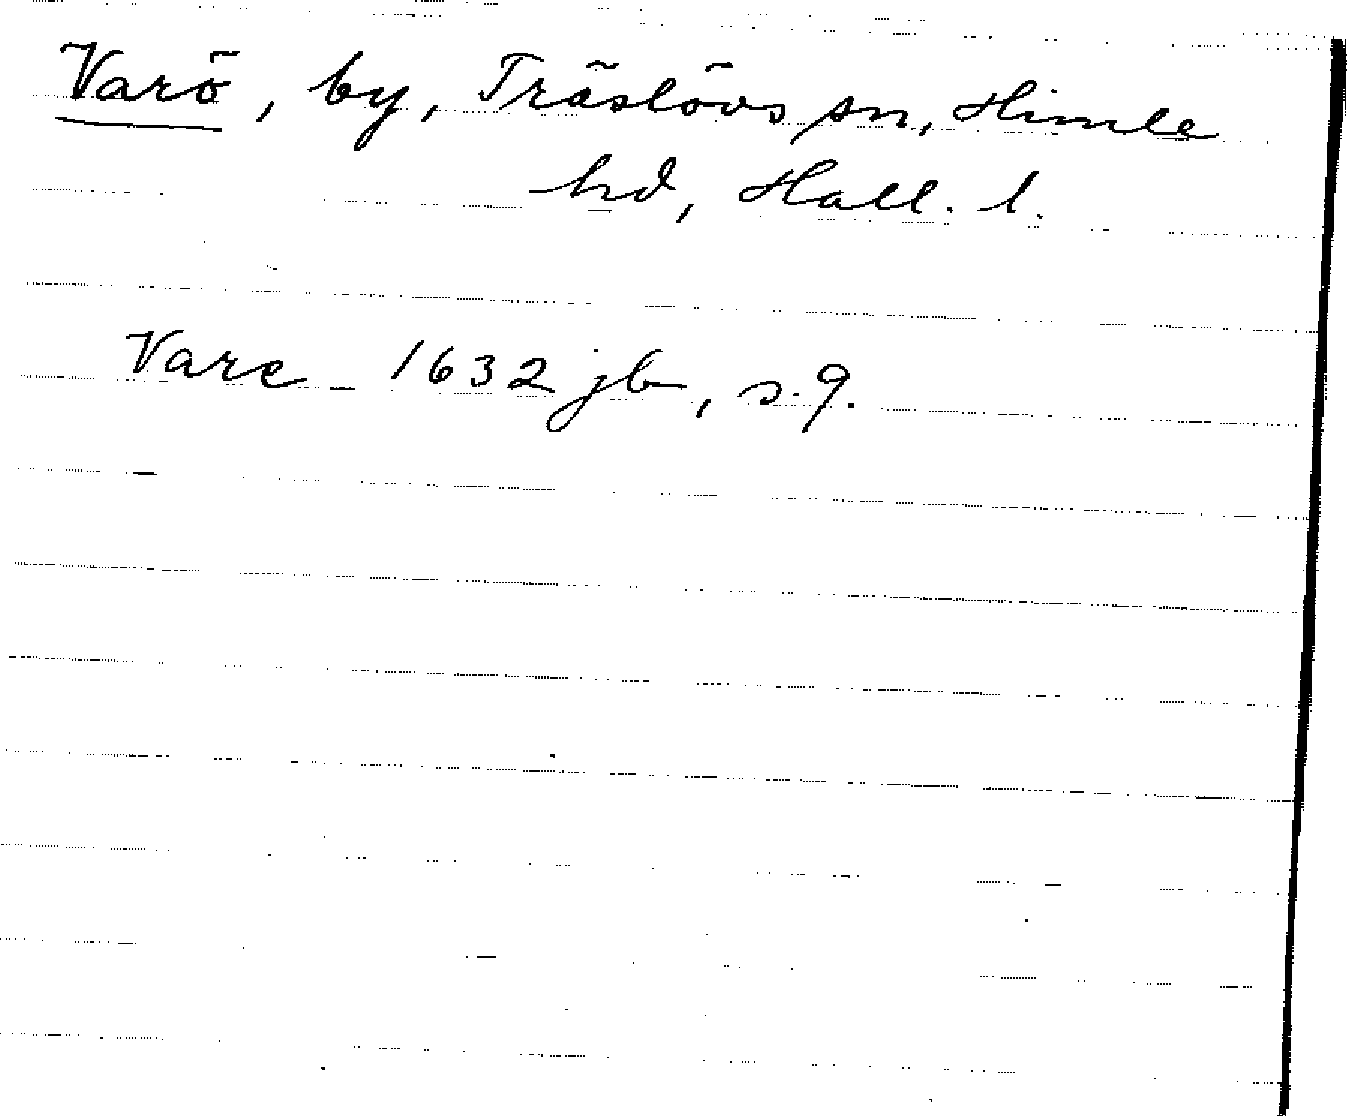 Varö, by, Träslövs sn, Himle
hd, Hall. l.
Vare - 1632 jb, s. 9.